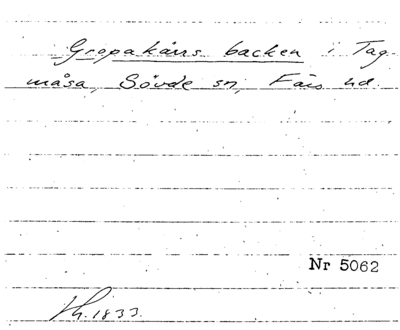 Gropakärrs backen i Tag
måsa, Sövde sn, Färs hd.
Nr 5062
Th. 1833.